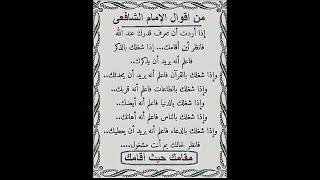 من اقوال الإمام الشافعى
إذا أردت أن تعرف قدرك عند الله
فانظر أين أقامك... إذا شغلك بالذكر
فاعلم أنه يريد أن يذكرك..
وإذا شغلك بالقرآن فاعلم أنه يريد أن يحدثك..
وإذا شغلك بالطاعات فاعلم أنه قربك..
وإذا شغلك بالدنيا فاعلم أنه أبعدك..
وإذا شغلك بالناس فاعلم أنه أهانك..
وإذا شغلك بالدعاء فاعلم أنه يريد أن يعطيك..
فانظر لحالك بم أنت مشغول....
مقامك حيث اقامك